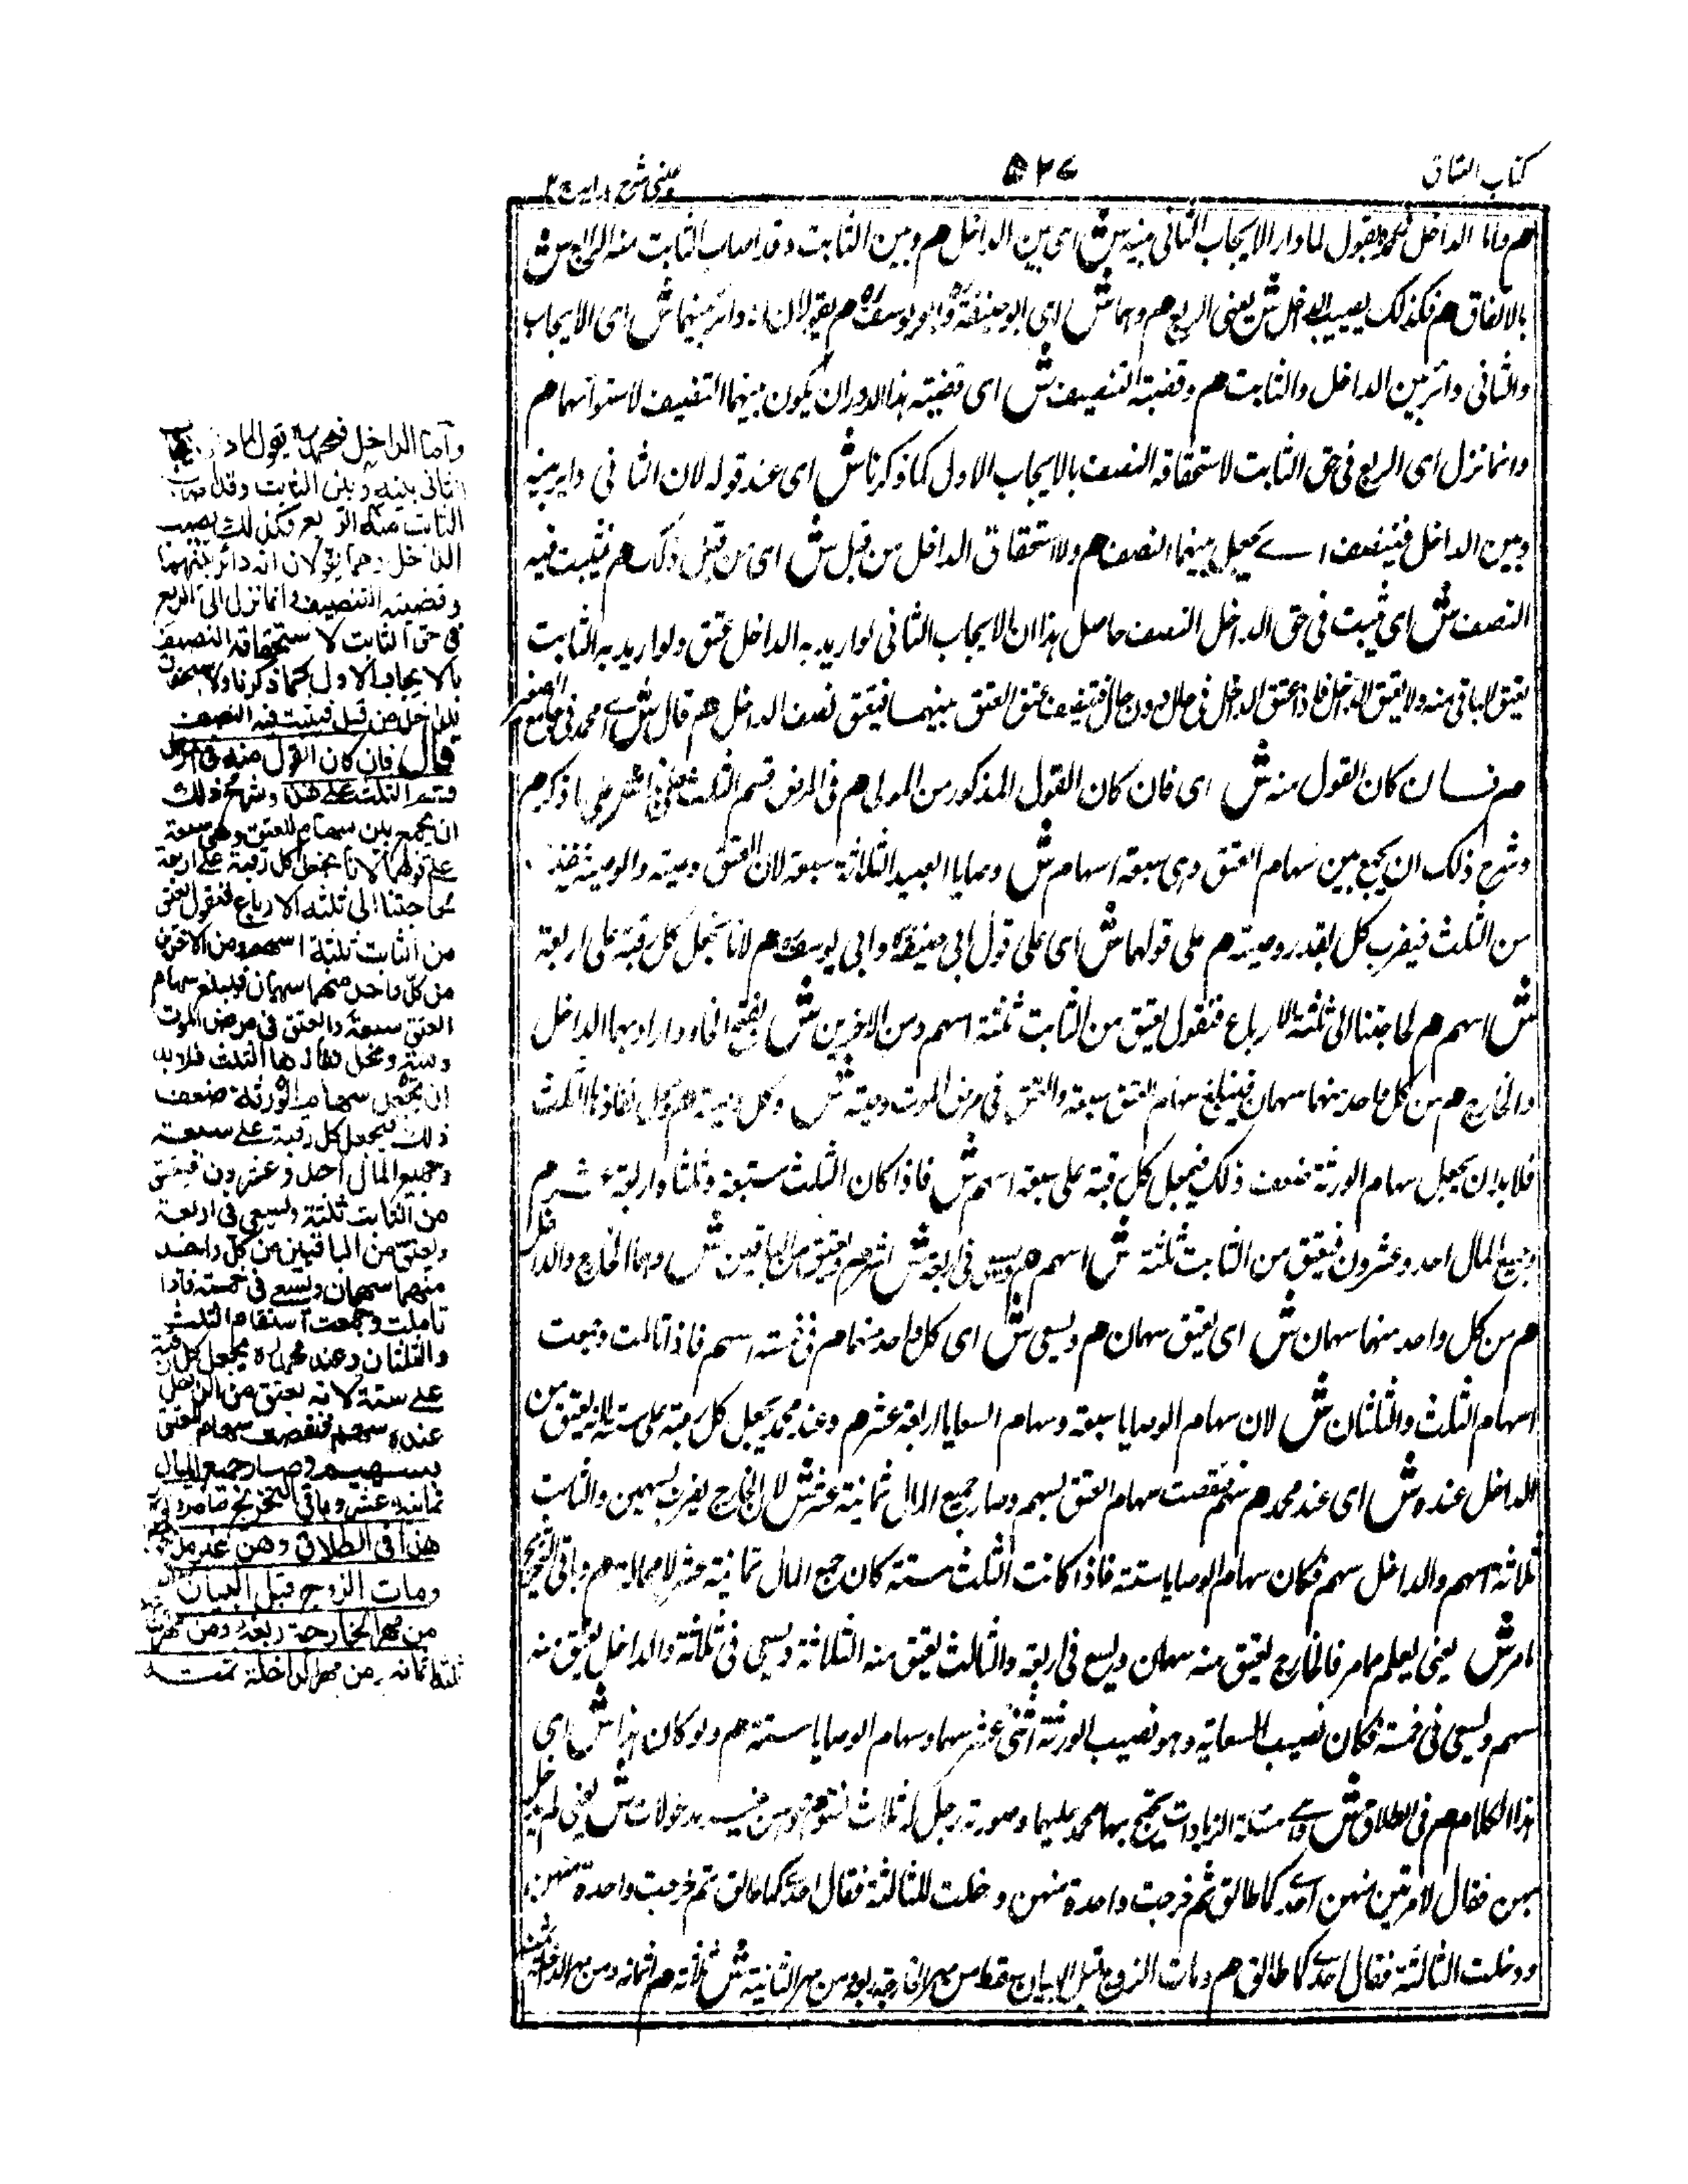 كتاب العتاق
٥٢٧
عينى شرح هداية ج ٢
هم واما الداخل فمحمد يقول لما دار الايجاب الثانى بينه ش اى بين الداخل هم وبين الثابت وقد اصاب الثابت منه الربع ش
بالاتفاق هم فكذلك يصيب الداخل ش يعنى الربع هم وهما ش اى ابو حنيفة وابو يوسف هم يقولان انه دائر بينهما ش اى الايجاب
والثانى دائر بين الداخل والثابت هم وقضيته التنصيف ش اى قضيته هذا الدوران يكون بينهما التنصيف لاستوائهما هم
وانما نزل اى الربع فى حق الثابت لاستحقاقه النصف بالايجاب الاول كما ذكرنا ش اى عند قوله لان الثانى داير بينه
وبين الداخل فيتنصف اے يجعل بينهما النصف هم ولا استحقاق الداخل من قبل ش اى من قبل ذلك هم فيثبت فيه
النصف ش اى يثبت فى حق الداخل النصف حاصل هذا ان الايجاب الثانى لو اريد به الداخل عتق ولو اريد به الثابت
يعتق الباقى منه ولا يعتق الداخل فاذا عتق الداخل فى حال دون حال فيتنصف عتق العتق بينهما فيعتق نصف الداخل هم قال ش اے محمد فى جامع الصغير
هم فان كان القول منه ش اى فان كان القول المذكور من المولى هم فى المرض قسم الثلث على هذا ش على ما ذكر هم
وشرح ذلك ان يجمع بين سهام العتق وهى سبعة اسهام ش وصايا العبيد الثلاثة سبعة لان العتق وصية والوصية تنفذ
من الثلث فيضرب كل بقدر وصيته هم على قولهما ش اى على قول ابى حنيفة وابى يوسف هم لانا نجعل كل رقبة على اربعة
ش اسهم هم لحاجتنا الى ثلثة الارباع فنقول يعتق من الثابت ثلثة اسهم ومن الاخرين ش بفتح الخاء واراد بهما الداخل
والخارج هم من كل واحد منهما سهمان فيبلغ سهام العتق سبعة والعتق فى مرض الموت وصية ش وكل وصية هم ومحل نفاذها الثلث
فلا بد ان يجعل سهام الورثة ضعف ذلك فيجعل كل رقبة على سبعة اسهم ش فاذا كان الثلث سبعة وثلثا واربعة عشر هم
وجميع المال احد وعشرون فيعتق من الثابت ثلثة ش اسهم هم ويسعى فى اربعة ش اسهم هم ويعتق من الباقيين ش وهما الخارج والداخل
هم من كل واحد منهما سهمان ش اى يعتق سهمان هم ويسعى ش اى كل واحد منهما هم فى خمسة اسهم فاذا تاملت وجمعت
اسهام الثلث والثلثان ش لان سهام الوصايا سبعة وسهام السعايا اربعة عشر هم وعند محمد يجعل كل رقبة على ستة لانه يعتق من
الداخل عنده ش اى عند محمد هم سهم فنقصت سهام العتق بسهم وصار جميع المال ثمانية عشر ش لان الخارج يضرب بسهمين والثابت
ثلاثة اسهم والداخل سهم فكان سهام الوصايا ستة فاذا كانت الثلث ستة كان جميع المال ثمانية عشر لا محالة هم وباقى التخريج
مامر ش يعنى يعلم مما مر فالخارج يعتق منه سهمان ويسع فى اربعة والثالث يعتق منه الثلاثة ويسعى فى ثلاثة والداخل يعتق منه
سهم ويسعى فى خمسة فكان نصيب السعاية وهو نصيب الورثة اثنى عشر سهما وسهام الوصايا ستة هم ولو كان هذا ش اى
هذا الكلام هم فى الطلاق ش اے مسئلة الزيادات يحتج بها محمد عليهما وصورته رجل له ثلاث نسوة هم وهن غير مدخولات ش يعنى لم يدخل
بهن فقال لامرتين منهن احديكما طالق ثم خرجت واحدة منهن ودخلت الثالثة فقال احديكما طالق ثم خرجت واحدة منهن
ودخلت الثالثة فقال احديكما طالق هم ومات الزوج قبل البيان سقط من مهر الخارجة ربعه ومن مهر الثانية ش ثلاثة هم اثمانه ومن مهر الداخلة ثمنه
واما الداخل فمحمد يقول لما دار
الثانى بينه وبين الثابت وقد اصاب
الثابت منه الربع فكذلك يصيب
الداخل وهما يقولان انه دائر بينهما
وقضيته التنصيف وانما نزل الى الربع
فى حق الثابت لاستحقاقه النصف
بالايجاب الاول كما ذكرنا ولا استحقاق
للداخل من قبل فيثبت فيه النصف
قال فان كان القول منه فى المرض
قسم الثلث على هذا وشرح ذلك
ان يجمع بين سهام العتق وهى سبعة
على قولهما لانا نجعل كل رقبة على اربعة
لحاجتنا الى ثلثة الارباع فنقول يعتق
من الثابت ثلثة اسهم ومن الاخرين
من كل واحد منهما سهمان فيبلغ سهام
العتق سبعة والعتق فى مرض الموت
وصية ومحل نفاذها الثلث فلا بد
ان يجعل سهام الورثة ضعف
ذلك فيجعل كل رقبة على سبعة
وجميع المال احد وعشرون فيعتق
من الثابت ثلثة ويسعى فى اربعة
ويعتق من الباقيين من كل واحد
منهما سهمان ويسعى فى خمسة فاذا
تاملت وجمعت استقام الثلث
والثلثان وعند محمد ره يجعل كل رقبة
على ستة لانه يعتق من الداخل
عنده سهم فنقصت سهام العتق
بسهم وصار جميع المال
ثمانية عشر وباقى التخريج مامر ولو كان
هذا فى الطلاق وهن غير مدخولات
ومات الزوج قبل البيان سقط
من مهر الخارجة ربعه ومن مهر الثابتة
ثلثة اثمانه ومن مهر الداخلة ثمنه